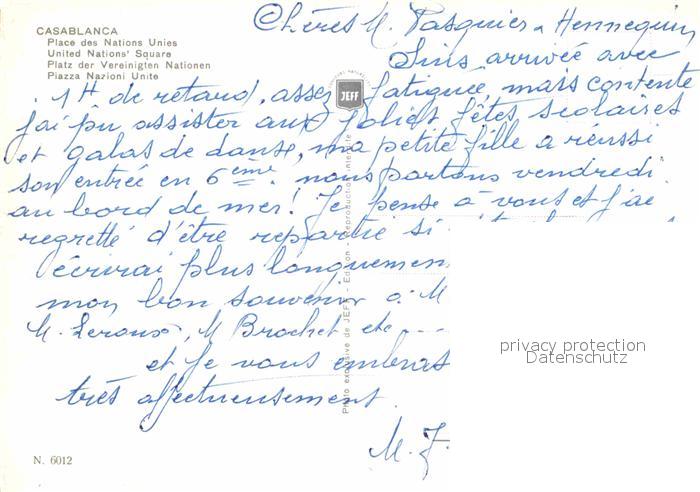 CASABLANCA
Place des Nations Unies
United Nations' Square
Platz der Vereinigten Nationen
Piazza Nazioni Unite
Chères M. Pasquier a Hennequin
Suis arrivée avec
1H de retard, assez fatiguée, mais contente
j'ai pu assister aux jolies fêtes scolaires
et galas de danse, ma petite fille a réussi
son entrée en 6ème. nous partons vendredi
au bord de mer! Je pense à vous et j'ai
regretté d'être repartie si
écrirai plus longuemen
mon bon souvenir à M
M. Leroux, M Brochet etc ---
et je vous embras
très affectueusement
M. J.
JEFF
Photo exclusive de JEFF - Edition - Reproduction interdite
privacy protection
Datenschutz
N. 6012